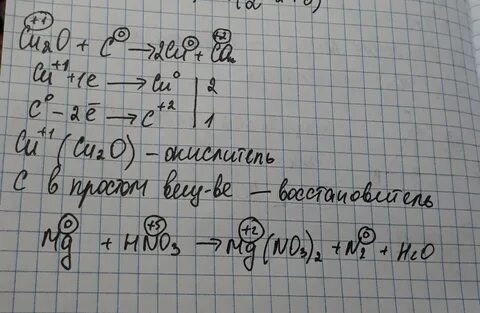 Cu₂O + C → 2Cu + CO
+1 0 0 +2
Cu⁺¹ + 1e → Cu⁰ | 2
C⁰ - 2ē → C⁺² | 1
Cu⁺¹ (Cu₂O) – окислитель
C в простом вещ-ве – восстановитель
0 +5 +2 0
Mg + HNO₃ → Mg(NO₃)₂ + N₂ + H₂O